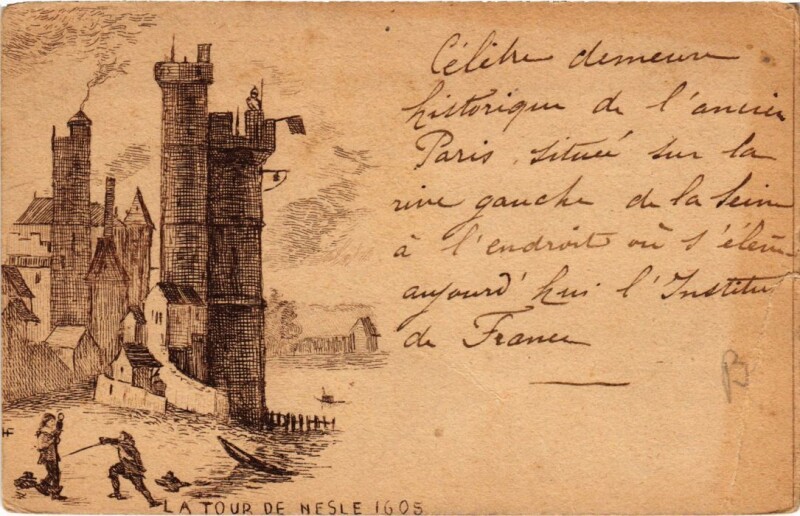 Célèbre demeure
historique de l'ancien
Paris, située sur la
rive gauche de la Seine
à l'endroit où s'élève
aujourd'hui l'Institut
de France
B
HF
LA TOUR DE NESLE 1605